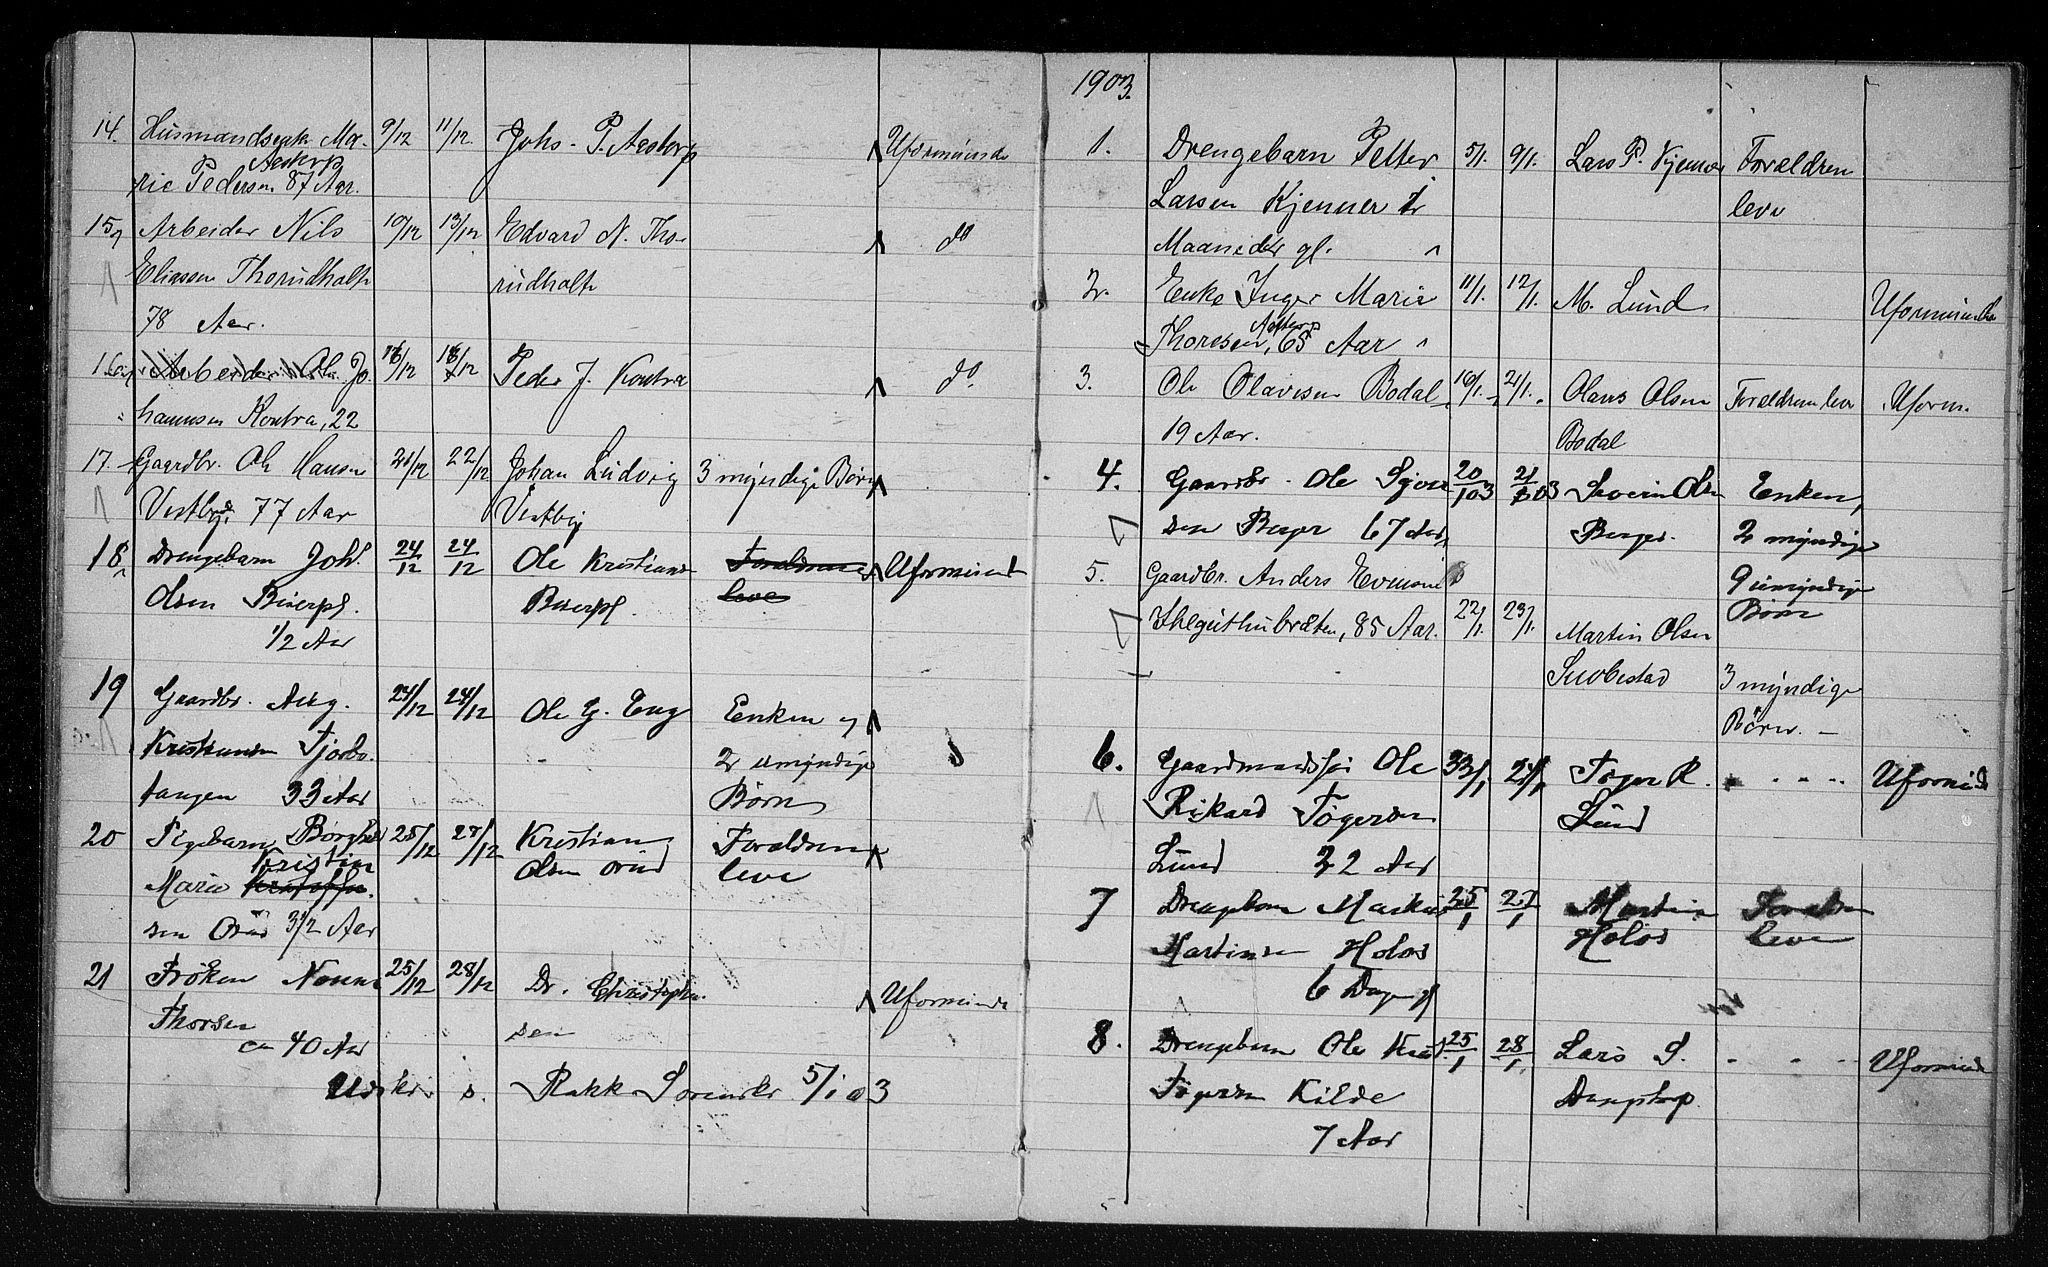 14. Husmandsenke Ma- 9/12 11/12. Johs. P. Aastorp Uformuende
Aastorp
rie Pedersen 87 Aar.
15 Arbeider Nils 10/12 13/12 Edvard N. Tho- do
Eliassen Thorudholt rudholt
78 Aar.
16 Arbeider Ole Jo- /12 18/12 Peder J. Kontra do.
hannsen Kontra, 22
17. Gaardbr. Ole Hansen 21/12 22/12 Johan Ludvig 3 myndige Børn
Vestby, 77 Aar Vestby
18 Drengebarn Joh. 24/12 24/12 Ole Kristians Foraldrene Uformuend
Olsen leve
1/2 Aar
19 Gaardbr. Aug. 24/12 24/12 Ole G. Eng Enken og
Kristiansen Tjosbo- 2 umyndige
tangen 33 Aar Børn
20 Pigebarn Borghild 25/12 27/12 Kristian Foraldrene
Kristian
Marie Olsen Orud leve
sen Orud 3 1/2 Aar
21 Frøken Nanna 25/12 28/12 Dr. Christophe Uformuende
Thorsen sen
ca 40 Aar
Udskr. s. Rakke Sorenskr 5/1 03
1903.
1. Drengebarn Petter 5/1. 9/1. Lars P. Kjenner Foraldren
Larsen Kjenner leve
Maaneder gl.
2. Enke Inger Marie 11/1. 12/1. M. Lund Uformuende
Thoresen, 65 Aar
3. Ole Olavesen Bodal 16/1. 21/1. Olaus Olsen Foraldrene leve Uform.
19 Aar. Bodal
4. Gaardbr. Ole Syver 20/1 03 21/1 03 Severin Olsen Enken,
sen Berger 67 Aar Berger. 2 myndige
5. Gaardbr. Anders Evensen 9 umyndige
Børn
85 Aar. 22/1. 23/1. Martin Olsen
3 myndige
Børn. –
6. Gaardmandsføi Ole 24/1 Tøger R. " " " Uformud
Rikard Tøgersen Lund
Lund 22 Aar
7 Drengebarn Markus 25/1 27/1 Martin Foraldre
Martinsen Holøs Holøs leve
6 Dage gl
8. Drengebarn Ole Knud. 25/1 28/1 Lars S. " " " Uformuend
Tøgersen Kilde
7 Aar